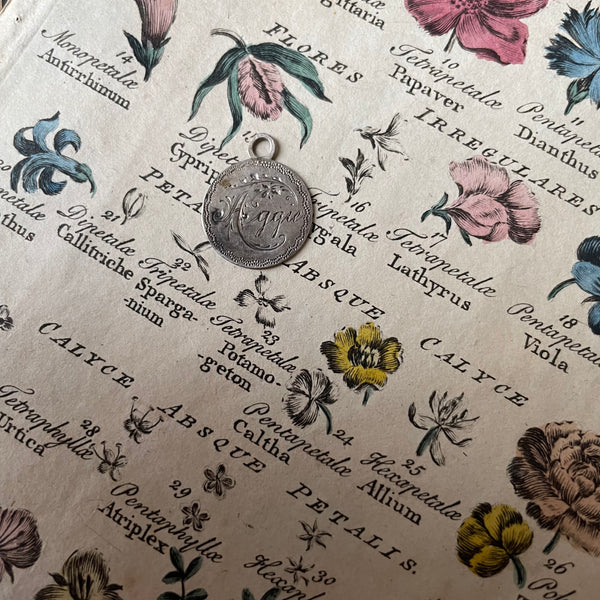 ittaria
14
Monopetalæ
Antirrhinum
FLORES
10
Tetrapetalæ
Papaver
11
Pentapetalæ
Dianthus
IRREGULARES
20
thus
15
Dipetalæ
Cyprip
Aggie
16
Tripetalæ
gala
17
Tetrapetalæ
Lathyrus
18
Pentapetalæ
Viola
PETA
ABSQUE
CALYCE
21
Dipetalæ
Callitriche
22
Tripetalæ
Sparga-
-nium
23
Tetrapetalæ
Potamo-
-geton
24
Pentapetalæ
Caltha
25
Hexapetalæ
Allium
26
CALYCE
ABSQUE
PETALIS.
28
Tetraphyllæ
Urtica
29
Pentaphyllæ
Atriplex
30